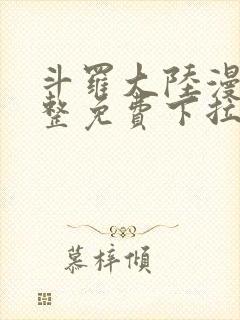 斗羅大陸漫
整免費下拉
慕梓傾